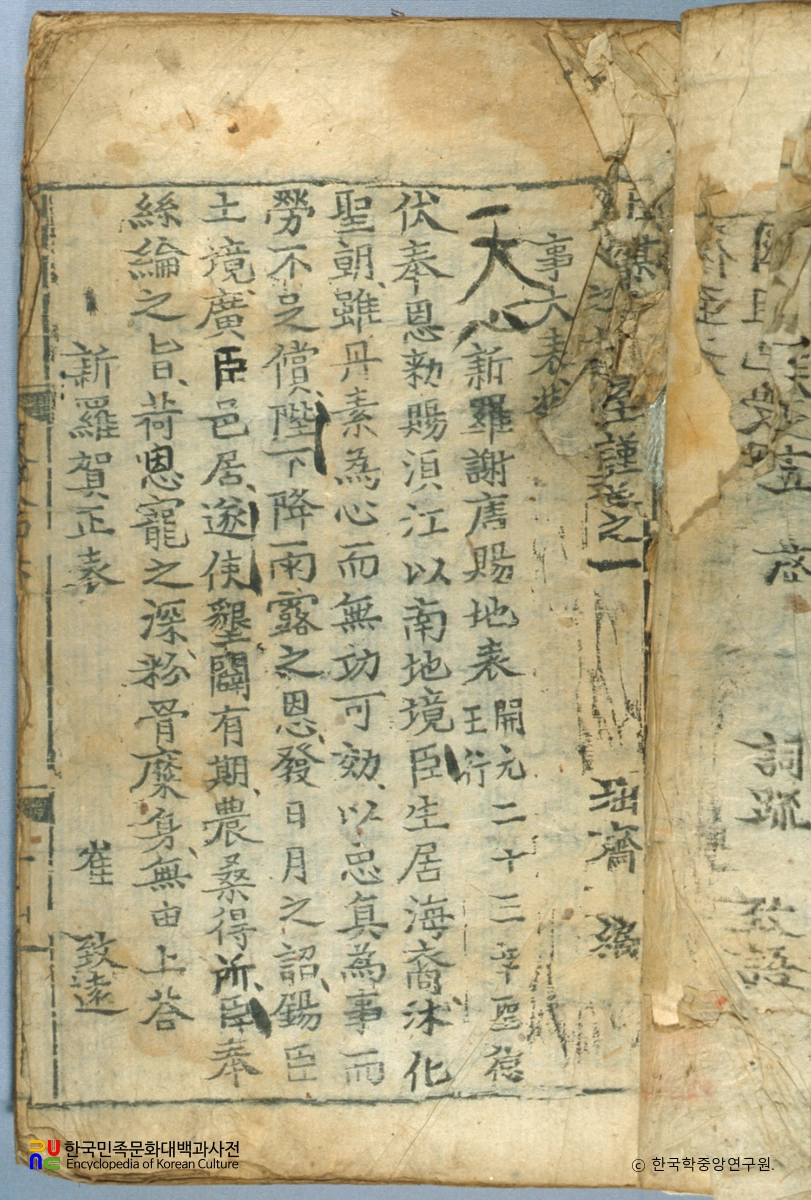 詞疏 致語
之一 拙齋 編
事大表狀
天心
新羅謝唐賜地表 開元二十三年聖德
王行
伏奉恩勑賜浿江以南地境臣生居海裔沐化
聖朝雖丹素為心而無功可効以忠貞為事而
勞不足償陛下降雨露之恩發日月之詔錫臣
土境廣臣邑居遂使墾闢有期農桑得所臣奉
絲綸之旨荷恩寵之深粉骨糜身無由上荅
新羅賀正表 崔 致遠
한국민족문화대백과사전
Encyclopedia of Korean Culture
ⓒ 한국학중앙연구원.